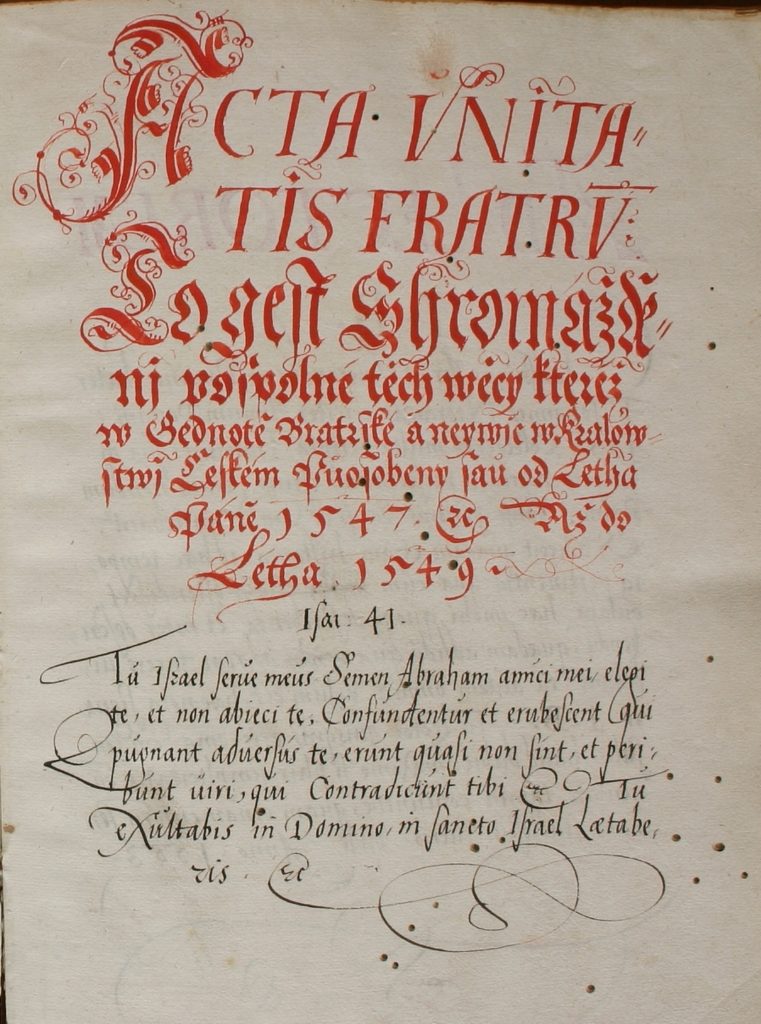 ACTA VNITA-
TIS FRATRV̄:
To gest Shromážďě-
nj pospolné těch wěcý kteréž
w Gednotě Bratrské a neywjc w Králow-
stwj Českém Puosobeny sau od Letha
Páně 1547. &c Až do
Letha. 1549
Isai: 41.
Tu Israel serue meus Semen Abraham amici mei, elegi
te, et non abieci te, Confundentur et erubescent qui
pugnant aduersus te, erunt quasi non sint, et peri-
bunt uiri, qui Contradicunt tibi &c Tu
eXultabis in Domino, in sancto Israel Lætabe-
ris. &c